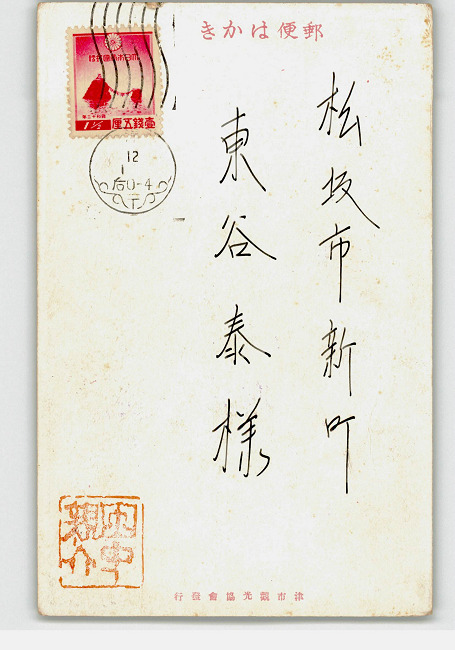 郵便はかき
大日本帝國郵便
昭和十二年
壹錢五厘
1½
12
1
后0-4
松坂市新町
東谷泰様
田中
親介
津市觀光協會發行